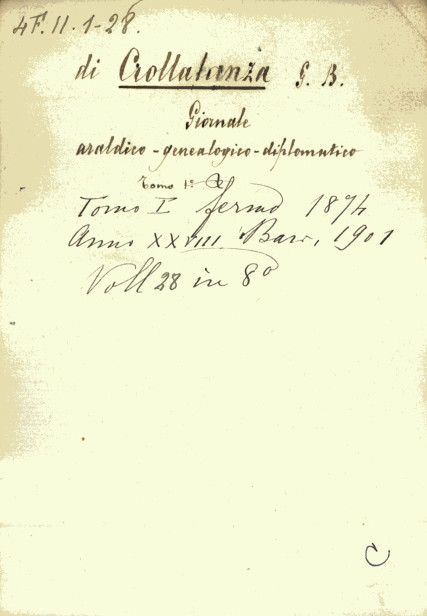 4F.II.1-28.
di Crollalanza G. B.
Giornale
araldico-genealogico-diplomatico
Tomo 1:
Tomo I fermo 1874
Anno XXVIII Bari, 1901
Voll 28 in 8°
C